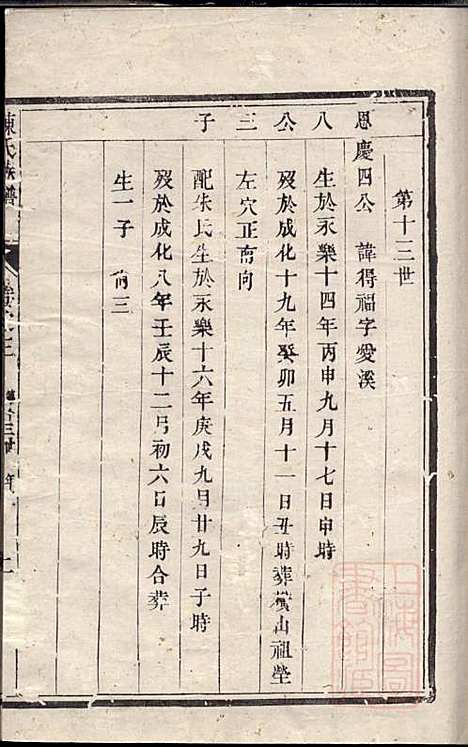 第十三世
恩慶四公 諱得福字愛溪
八公三子
生於永樂十四年丙申九月十七日申時
歿於成化十九年癸卯五月十一日丑時葬橫山祖塋
左穴正南向
配朱氏生於永樂十六年庚戌九月廿九日子時
歿於成化八年壬辰十二月初六日辰時合葬
生一子 尙三
陳氏族譜